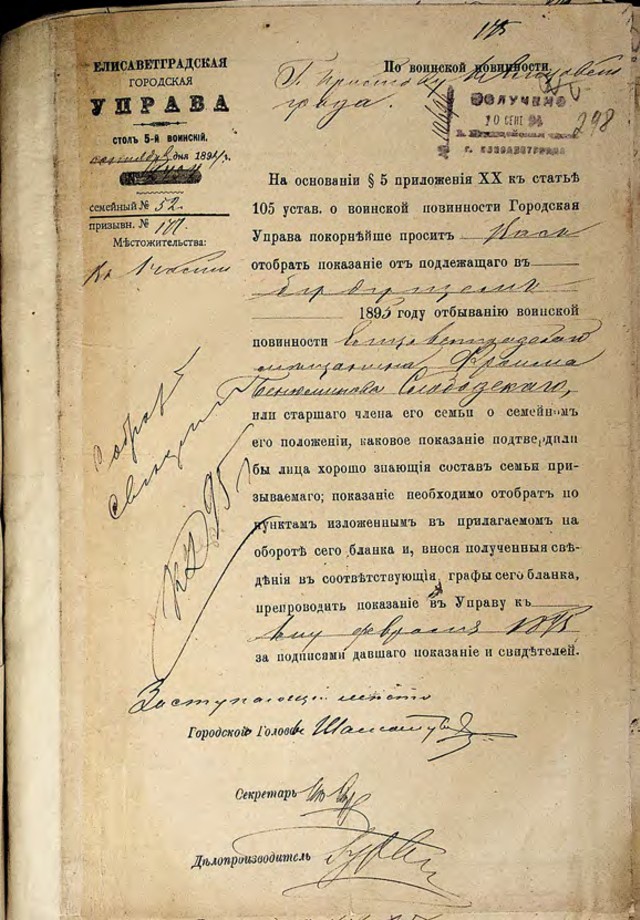 175
ЕЛИСАВЕТГРАДСКАЯ
ГОРОДСКАЯ
УПРАВА
СТОЛЪ 5-й ВОИНСКІЙ,
дня 189 г.
семейный № 52
призывн. № 177
Мѣстожительства:
По воинской повинности.
Г. Приставу
града.
ПОЛУЧЕНО
10 СЕНТ 94
Г. ЕЛИСАВЕТГРАДА
298
На основаніи § 5 приложенія XX къ статьѣ
105 устав. о воинской повинности Городская
Управа покорнѣйше проситъ Васъ
отобрать показаніе отъ подлежащаго въ
будущемъ
1895 году отбыванію воинской
повинности Елисаветградскаго
мѣщанина
Слободскаго,
или старшаго члена его семьи о семейномъ
его положеніи, каковое показаніе подтвердили
бы лица хорошо знающія составъ семьи при-
зываемаго; показаніе необходимо отобрать по
пунктамъ изложеннымъ въ прилагаемомъ на
оборотѣ сего бланка и, внося полученныя свѣ-
дѣнія въ соотвѣтствующія графы сего бланка,
препроводить показаніе въ Управу къ
февраля 1895
за подписями давшаго показаніе и свидѣтелей.
Собрать
свѣдѣнія
95
Заступающій мѣсто
Городской Голова
Секретарь
Дѣлопроизводитель